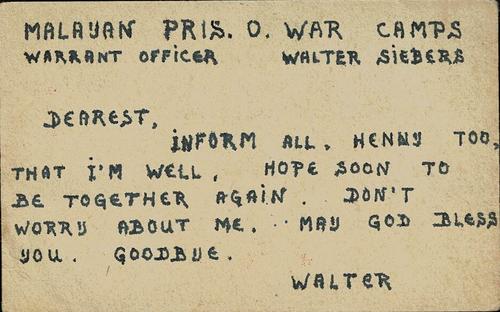 MALAYAN PRIS. O. WAR CAMPS
WARRANT OFFICER WALTER SIEBERS
DEAREST,
INFORM ALL, HENNY TOO,
THAT I'M WELL, HOPE SOON TO
BE TOGETHER AGAIN. DON'T
WORRY ABOUT ME. .. MAY GOD BLESS
YOU. GOODBYE.
WALTER